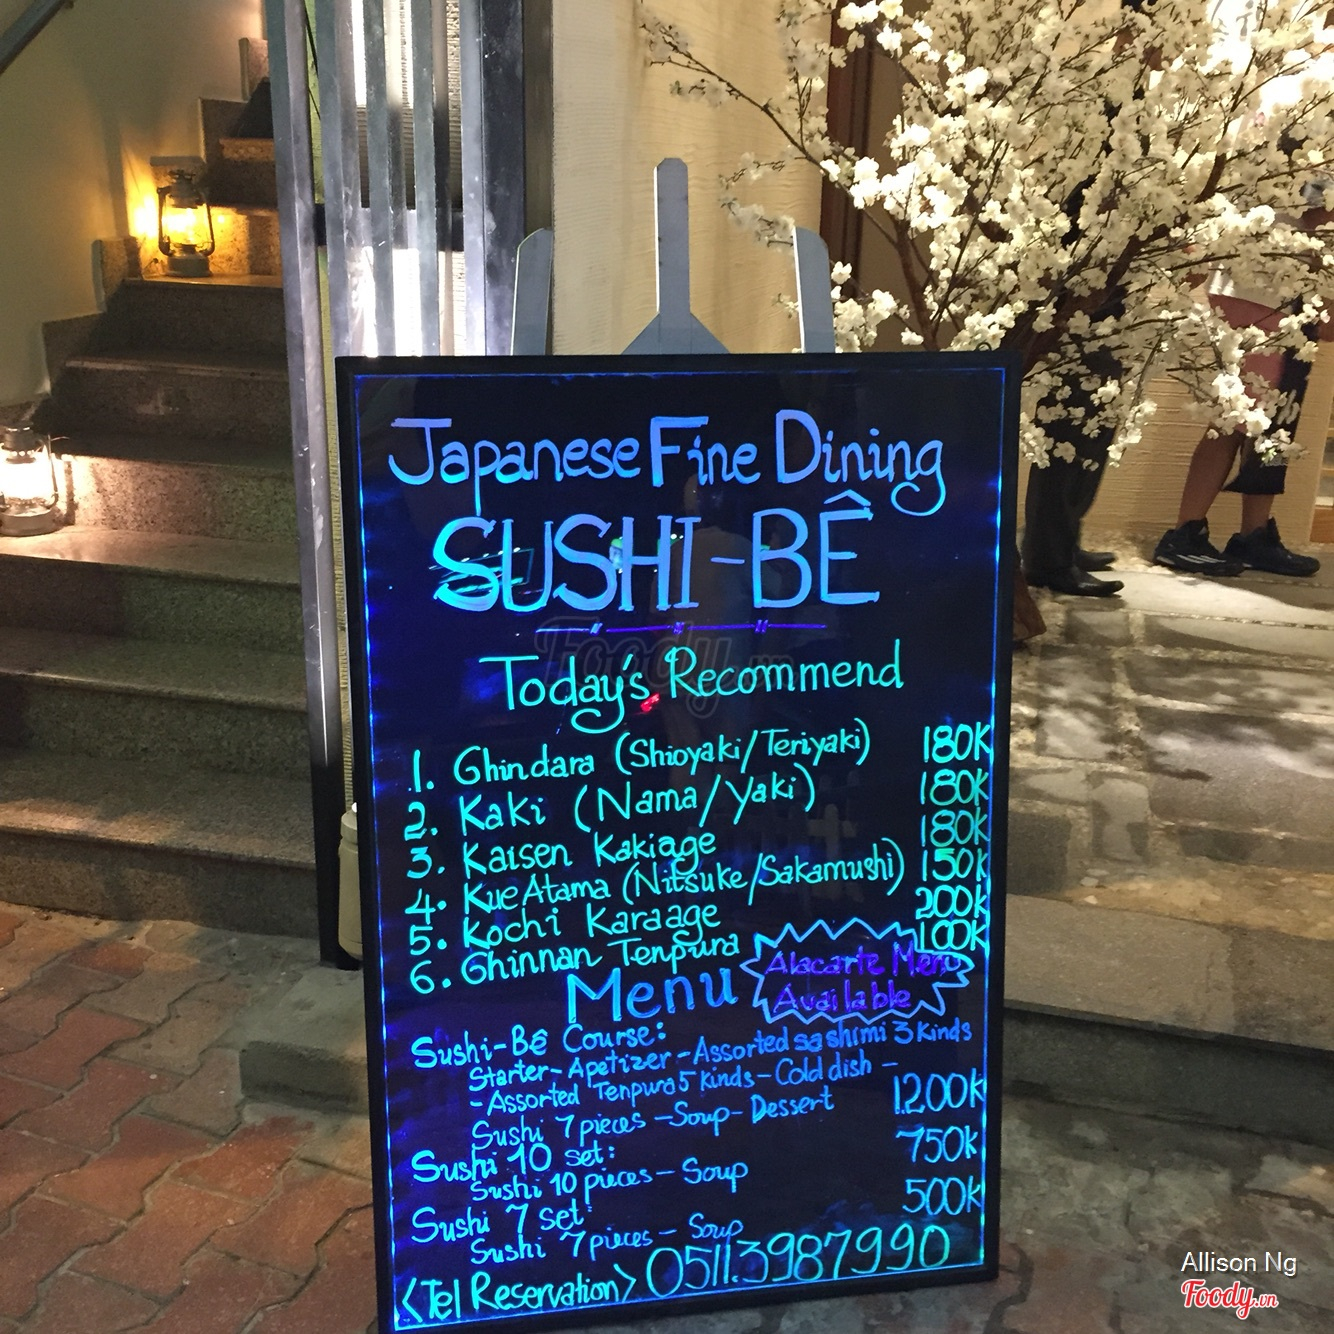 Japanese Fine Dining
SUSHI-BÊ
Today's Recommend
1. Ghindara (Shioyaki/Teriyaki) 180K
2. Kaki (Nama/Yaki) 180K
3. Kaisen Kakiage 180K
4. Kue Atama (Nitsuke/Sakamushi) 150K
5. Kochi Karaage 200K
6. Ghinnan Tenpura 100K
Menu
Alacarte Menu
Available
Sushi-Bê Course:
Starter-Apetizer-Assorted sashimi 3 kinds
-Assorted Tenpura 5 kinds-Cold dish-
Sushi 7 pieces-Soup-Dessert 1.200K
Sushi 10 set: 750K
Sushi 10 pieces-Soup
Sushi 7 set: 500K
Sushi 7 pieces-Soup
<Tel Reservation> 0511.3987990
Foody.vn
Allison Ng
Foody.vn